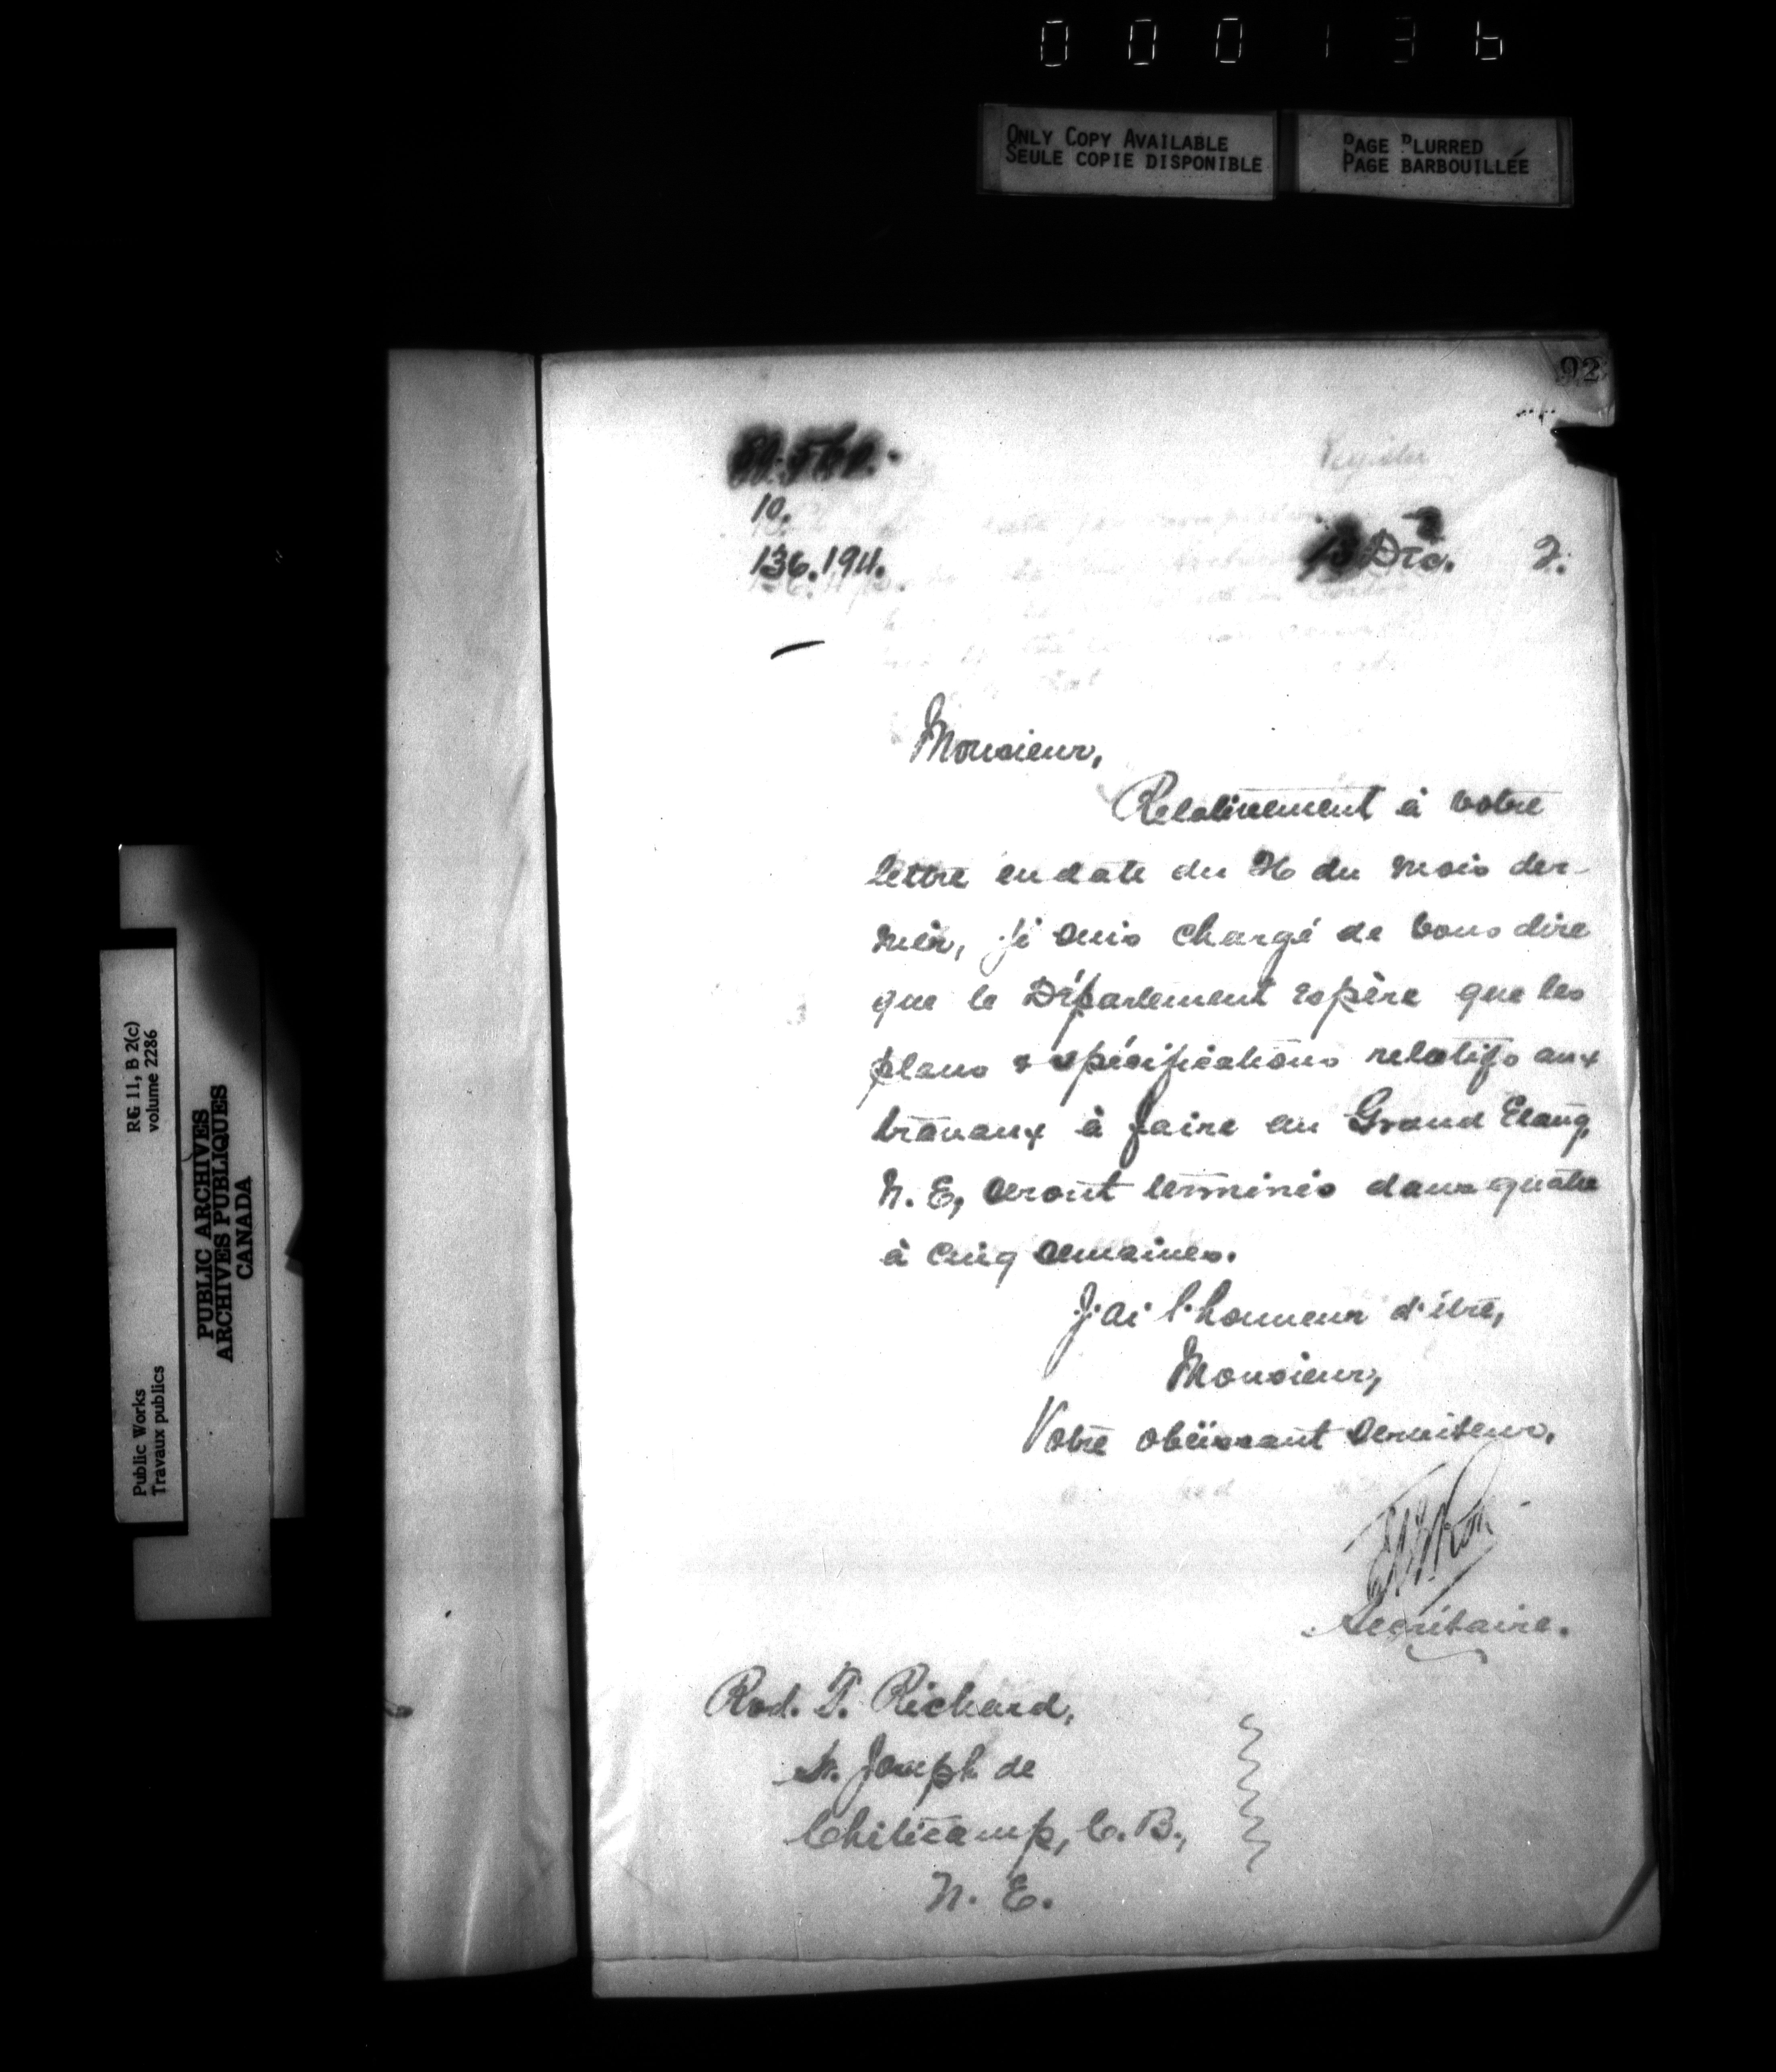 000136
ONLY COPY AVAILABLE
SEULE COPIE DISPONIBLE
PAGE BLURRED
PAGE BARBOUILLÉE
92
10.
136.194.
13 Déc. 2.
Monsieur,
Relativement à votre
lettre en date du 26 du mois der-
nier, je suis chargé de vous dire
que le Département espère que les
plans & spécifications relatifs aux
travaux à faire au Grand Etang,
N. E., seront terminés dans quatre
à cinq semaines.
J'ai l'honneur d'être,
Monsieur,
Votre obéissant serviteur,
Secrétaire.
Rod. T. Richard,
St. Joseph de
Chéticamp, C. B.,
N. E.
RG 11, B 2(c)
volume 2286
Public Works
Travaux publics
PUBLIC ARCHIVES
ARCHIVES PUBLIQUES
CANADA